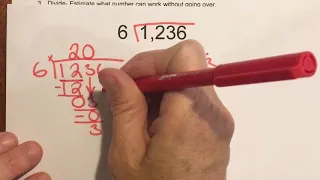 3. Divide. Estimate what number can work without going over.
6 1,236
20
6 1236
-12
03
-0
3